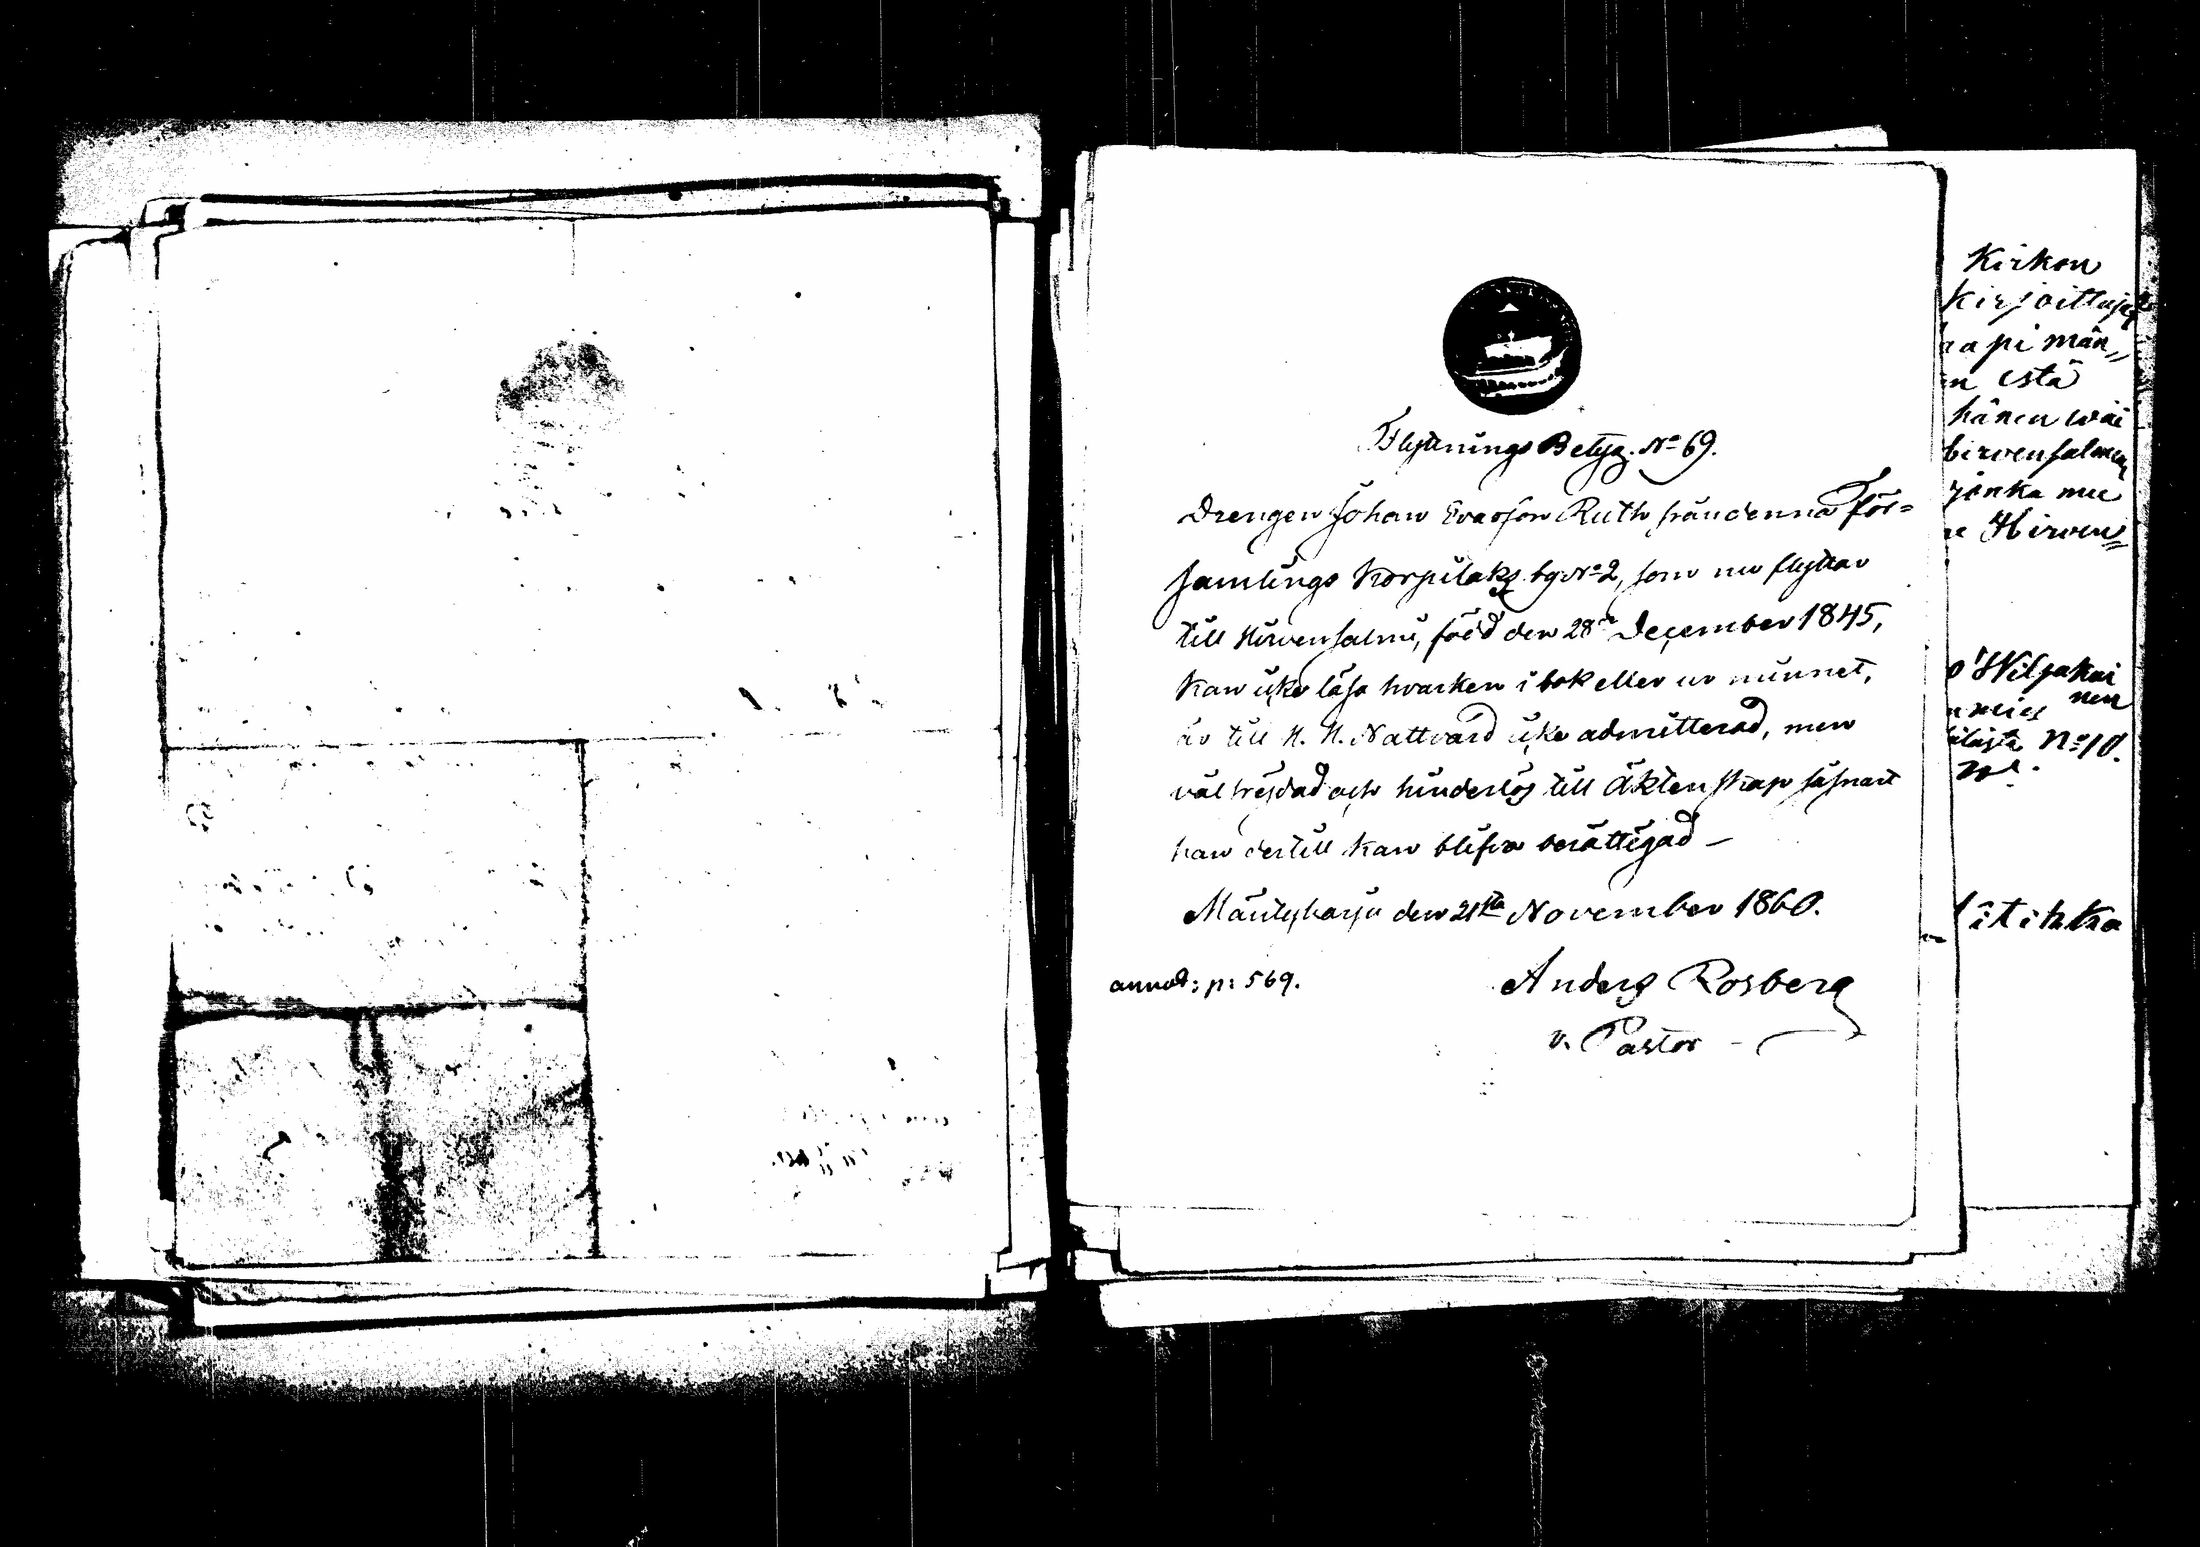 Flyttnings Betyg. No 69.
Drengen Johan Evasson Ruth från denna För=
samlings Korpilaks by No 2, som nu flyttar
till Hirvensalmi, född den 28de December 1845,
kan icke läsa hvarken i bok eller ur minnet,
är till H. H. Nattvard icke admitterad, men
väl frejdad och hinderlös till Äktenskap såsnart
han dertill kan blifva berättigad –
Mäntyharju den 21sta November 1860.
annot: p: 569.
Anders Rosberg
v. Pastor –
Kirkon
kirjoittaja
api män„
n estä
hänen wai
hirvensalmen
jonka mu
Hirven=
Wiljakai
nen
No 10.
itikka